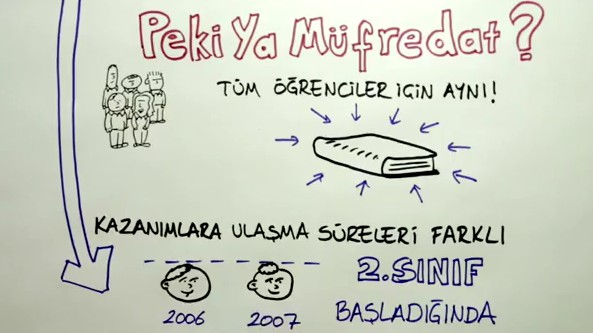 Peki Ya Müfredat?
TÜM ÖĞRENCİLER İÇİN AYNI!
KAZANIMLARA ULAŞMA SÜRELERİ FARKLI
2006 2007
2.SINIF
BAŞLADIĞINDA